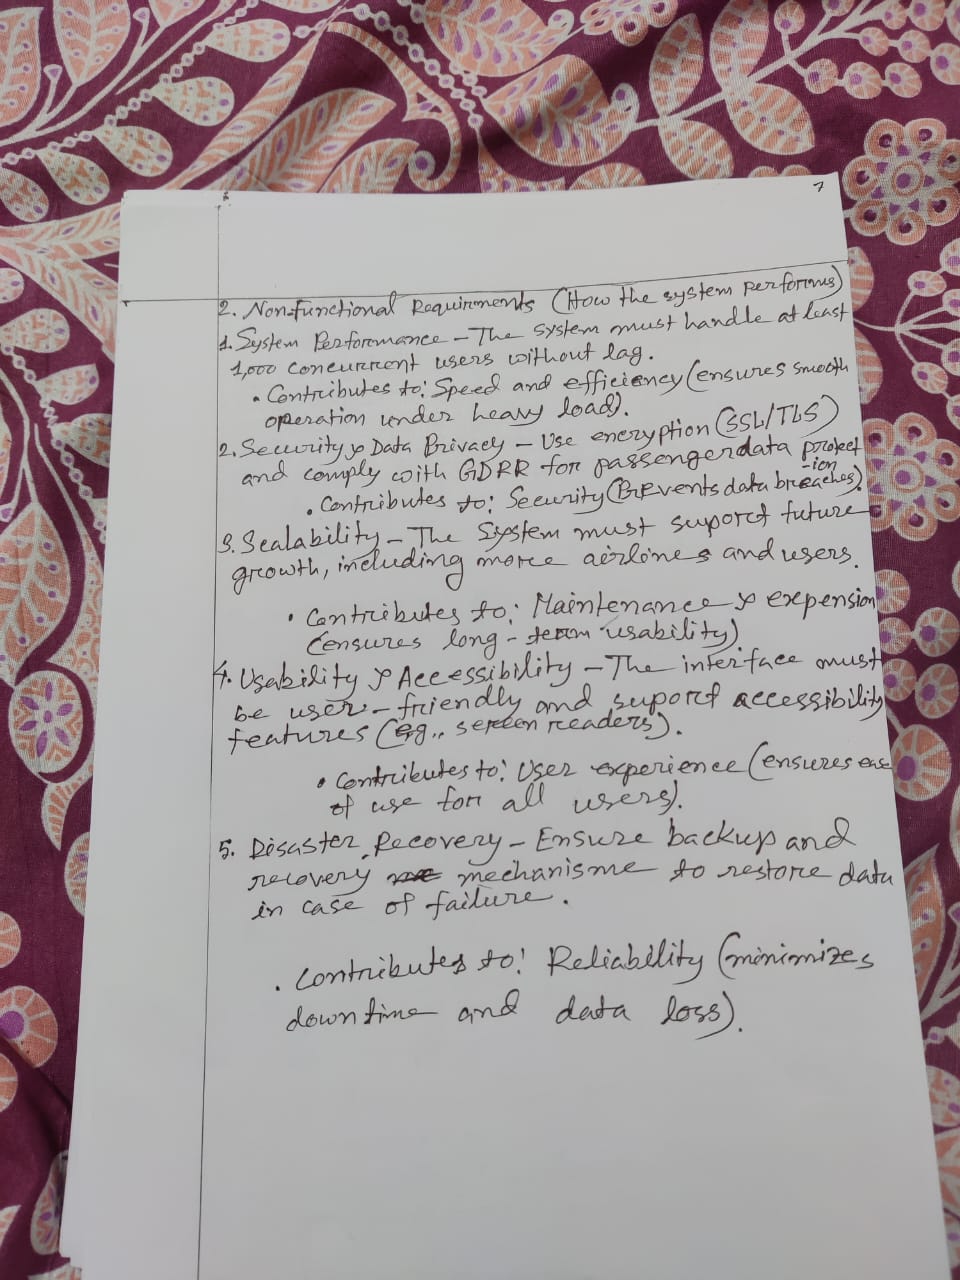 7
2. Non-functional Requirments (How the system performs)
1. System Performance - The system must handle at least
1,000 concurrent users without lag.
• Contributes to: Speed and efficiency (ensures smooth
operation under heavy load).
2. Security & Data Privacy - Use encryption (SSL/TLS)
and comply with GDRR for passenger data protect
-ion
• Contributes to: Security (Prevents data breaches).
3. Scalability - The System must suport future
growth, including more airlines and users.
• Contributes to: Maintenance & expension
(ensures long-term usability)
4. Usability & Accessibility - The interface must
be user-friendly and suport accessibility
features (eg., screen readers).
• Contributes to: User experience (ensures ease
of use for all users).
5. Disaster Recovery - Ensure backup and
recovery mechanisme to restore data
in case of failure.
• Contributes to: Reliability (minimizes
downtime and data loss).